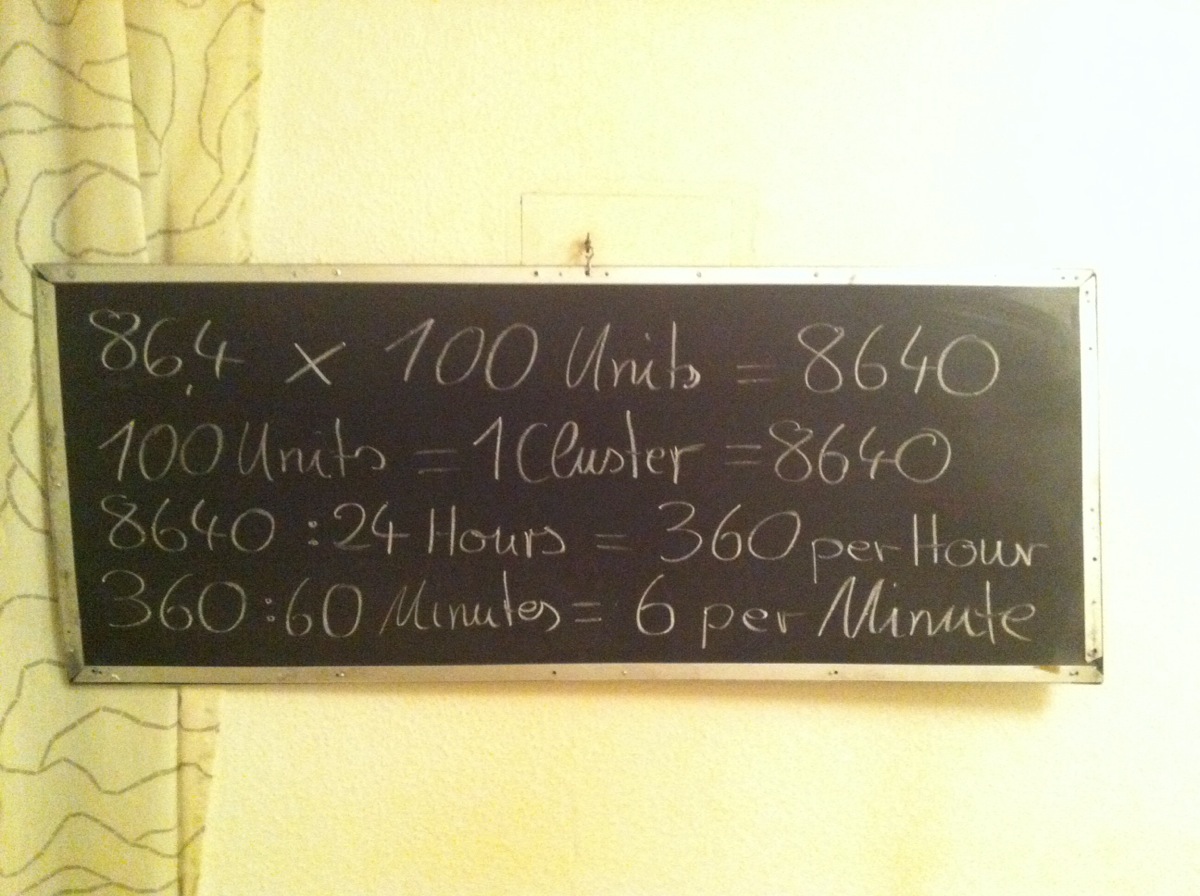 86,4 x 100 Units = 8640
100 Units = 1 Cluster = 8640
8640 : 24 Hours = 360 per Hour
360 : 60 Minutes = 6 per Minute